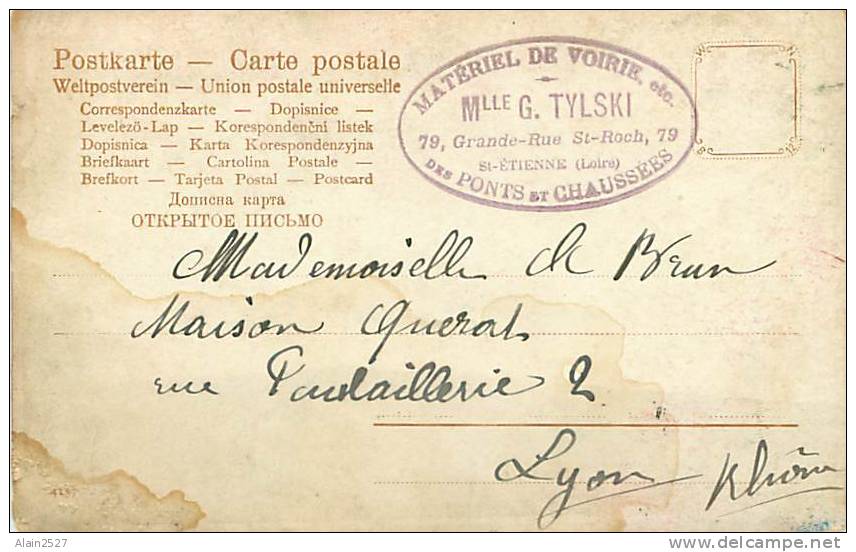 Postkarte — Carte postale
Weltpostverein — Union postale universelle
Correspondenzkarte — Dopisnice —
Levelező-Lap — Korespondenčni listek
Dopisnica — Karta Korespondenzyjna
Briefkaart — Cartolina Postale —
Brefkort — Tarjeta Postal — Postcard
Дописна карта
ОТКРЫТОЕ ПИСЬМО
MATÉRIEL DE VOIRIE, etc.
MLLE G. TYLSKI
79, Grande-Rue St-Roch, 79
St-ÉTIENNE (Loire)
DES PONTS ET CHAUSSÉES
Mademoiselle de Brun
Maison Querat
rue Poulaillerie 2
Lyon Rhône
Alain2527
delcampe.net